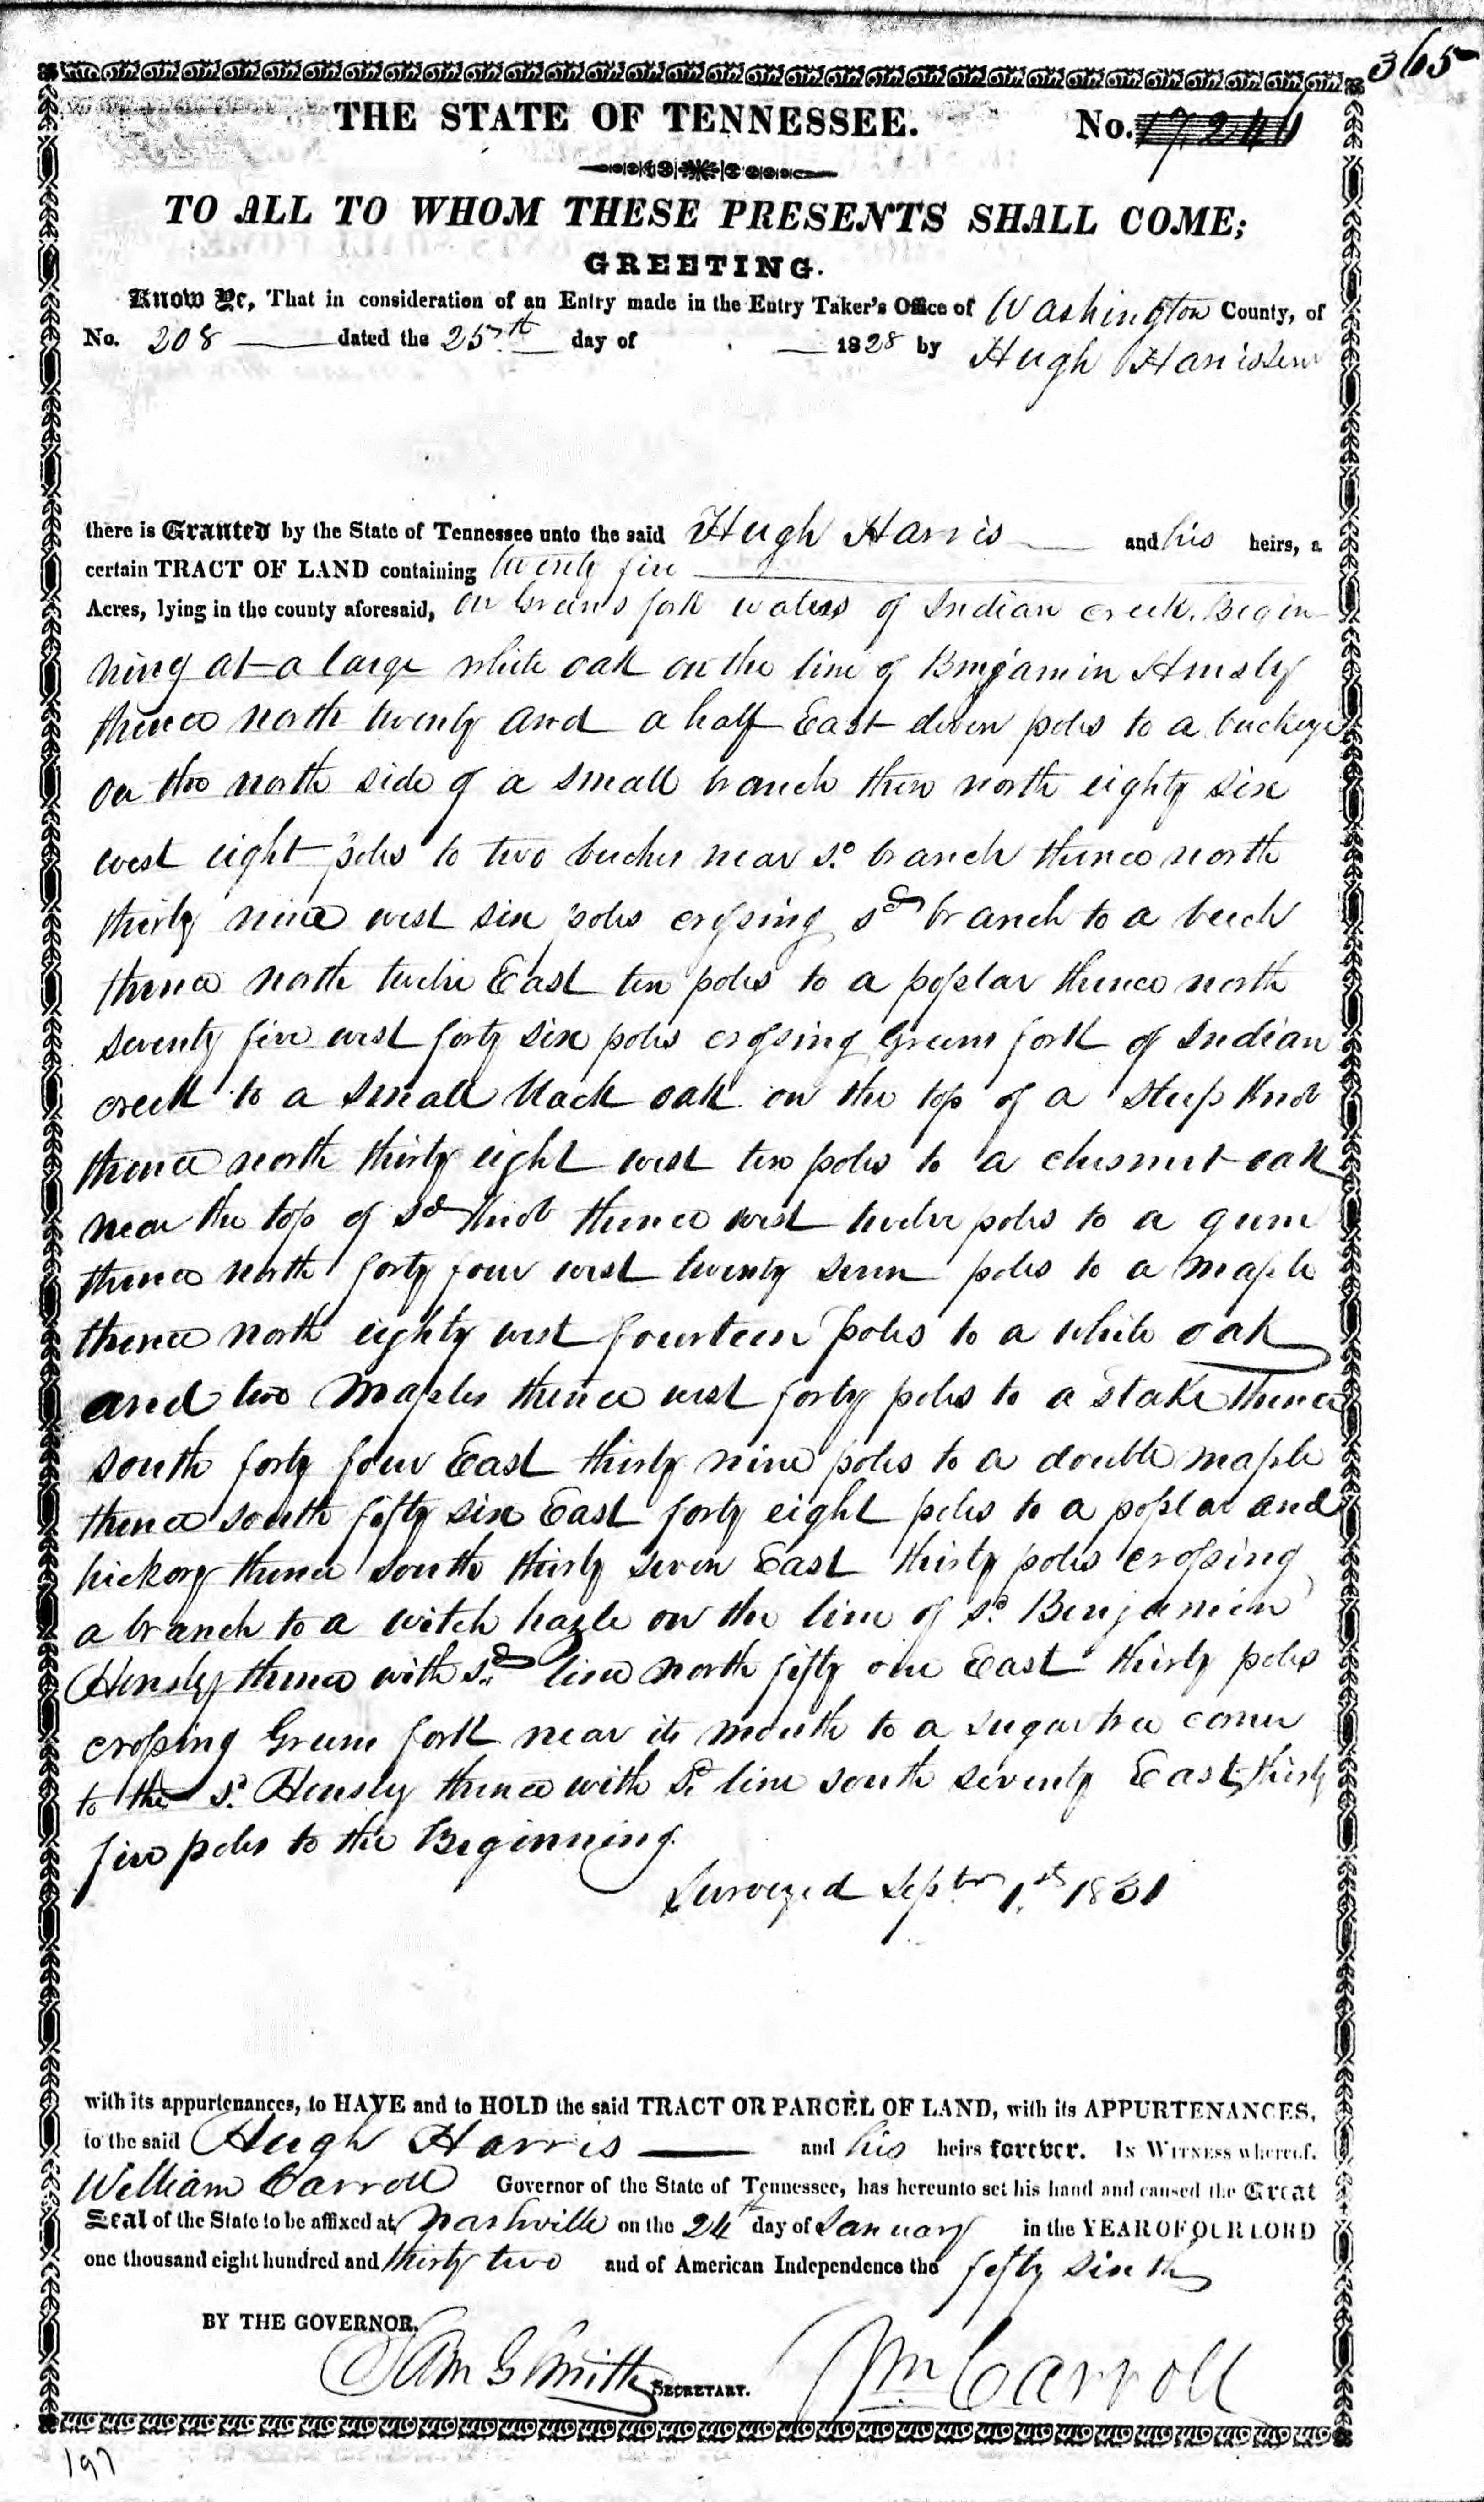 365
THE STATE OF TENNESSEE. No. 17241
TO ALL TO WHOM THESE PRESENTS SHALL COME;
GREETING.
Know Ye, That in consideration of an Entry made in the Entry Taker's Office of Washington County, of
No. 208 dated the 25th day of 1828 by Hugh Harris
there is Granted by the State of Tennessee unto the said Hugh Harris and his heirs, a
certain TRACT OF LAND containing twenty five
Acres, lying in the county aforesaid, on Greens fork waters of Indian creek. Begin
ning at a large white oak on the line of Benjamin Hensly
thence north twenty and a half East eleven poles to a buckeye
on the north side of a small branch then north eighty six
west eight poles to two beeches near sd. branch thence north
thirty nine west six poles crossing sd branch to a beech
thence north twelve East ten poles to a poplar thence north
seventy five west forty six poles crossing Greens fork of Indian
creek to a small black oak on the top of a steep knob
thence north thirty eight west ten poles to a chesnut oak
near the top of sd knob thence west twelve poles to a gum
thence north forty four west twenty seven poles to a maple
thence north eighty west fourteen poles to a white oak
and two maples thence west forty poles to a stake thence
south forty four East thirty nine poles to a double maple
thence south fifty six East forty eight poles to a poplar and
hickory thence south thirty seven East thirty poles crossing
a branch to a witch hazle on the line of sd. Benjamin
Hensley thence with sd. line north fifty one East thirty poles
crossing Greens fork near its mouth to a sugartree corner
to the sd. Hensley thence with sd. line south seventy East thirty
five poles to the Beginning.
Surveyed Septbr 1st 1831
with its appurtenances, to HAVE and to HOLD the said TRACT OR PARCEL OF LAND, with its APPURTENANCES,
to the said Hugh Harris and his heirs forever. IN WITNESS whereof,
William Carroll Governor of the State of Tennessee, has hereunto set his hand and caused the Great
Seal of the State to be affixed at Nashville on the 24th day of January in the YEAR OF OUR LORD
one thousand eight hundred and thirty two and of American Independence the fifty sixth
BY THE GOVERNOR.
Sam G Smith SECRETARY. Wm Carroll
197